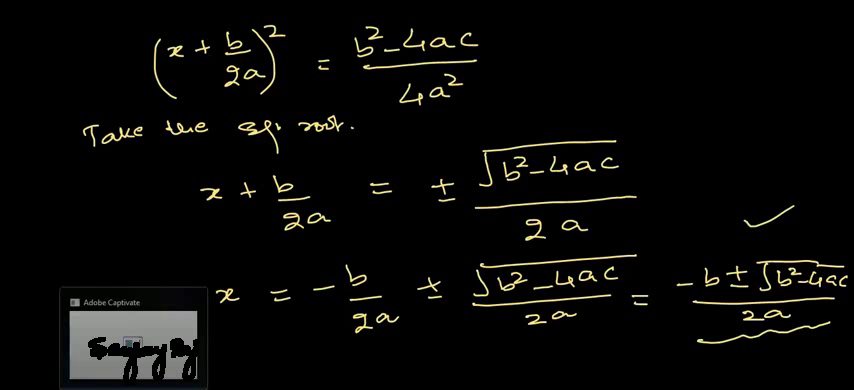 (x + b/2a)² = b² - 4ac / 4a²
Take the sq. root.
x + b/2a = ± √b² - 4ac / 2a
x = - b/2a ± √b² - 4ac / 2a = -b ± √b² - 4ac / 2a
Adobe Captivate